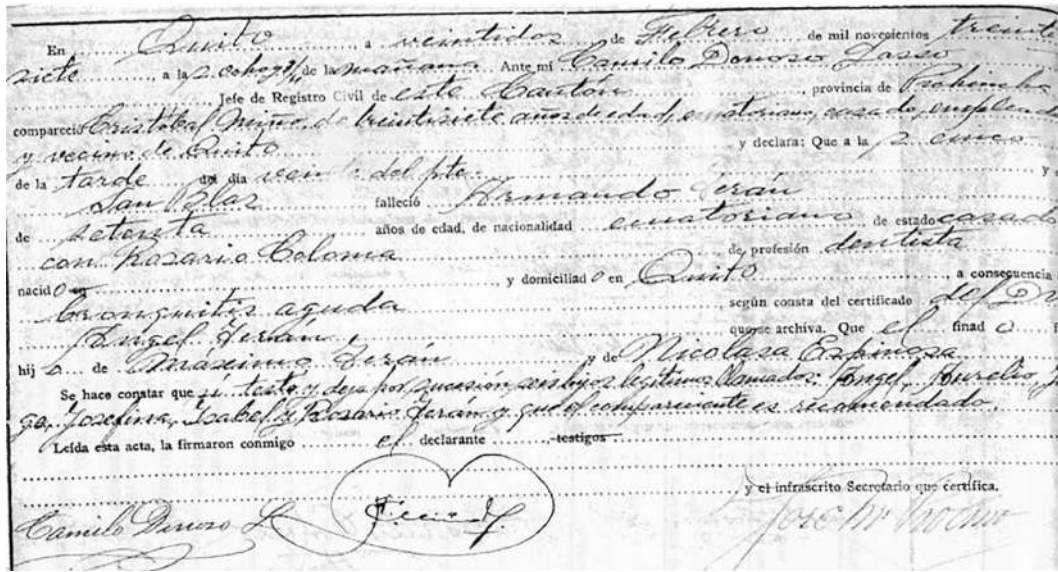 En Quito a veintidos de Febrero de mil novecientos treinta
siete, a las ocho y ½ de la mañana Ante mí Camilo Donoso Lasso
Jefe de Registro Civil de este Cantón, provincia de Pichincha
compareció Cristóbal Miño, de treintisiete años de edad, ecuatoriano, casado, emplea
y vecino de Quito y declara: Que a las cinco
de la tarde del día veinte del pte. y
San Blas falleció Armando Terán
de setenta años de edad, de nacionalidad ecuatoriano de estado casado
con Rosario Coloma de profesión dentista
nacido en y domiciliado en Quito, a consecuencia
bronquitis aguda según consta del certificado del Dr
Angel Terán, que se archiva. Que el finado
hijo de Máximo Terán y de Nicolasa Espinosa
Se hace constar que si testó y deja por sucesión seis hijos legítimos llamados: Angel, Aurelio,
Josefina, Isabel y Rosario Terán y que el compareciente es recomendado.
Leída esta acta, la firmaron conmigo el declarante, testigos
y el infrascrito Secretario que certifica.
Camilo Donoso L